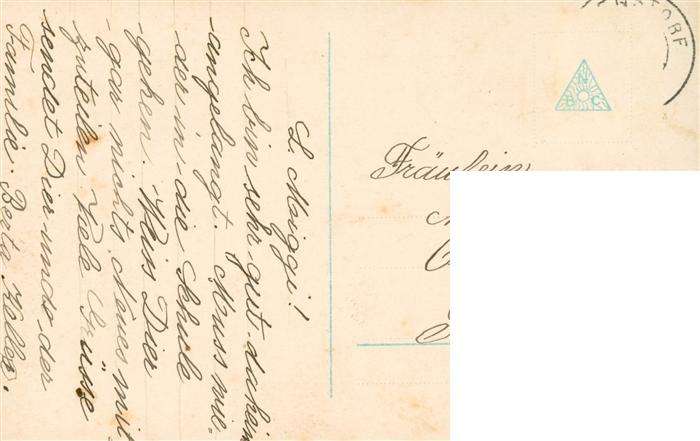 L. Miggi!
Ich bin sehr gut daheim
angelangt. Muss wie-
der in die Schule
gehen. Weis Dier
gar nichts Neues mit
zuteilen. Viele Grüsse
sendet Dier und der
Familie. Berta Keller.
Fräulein
N
B C